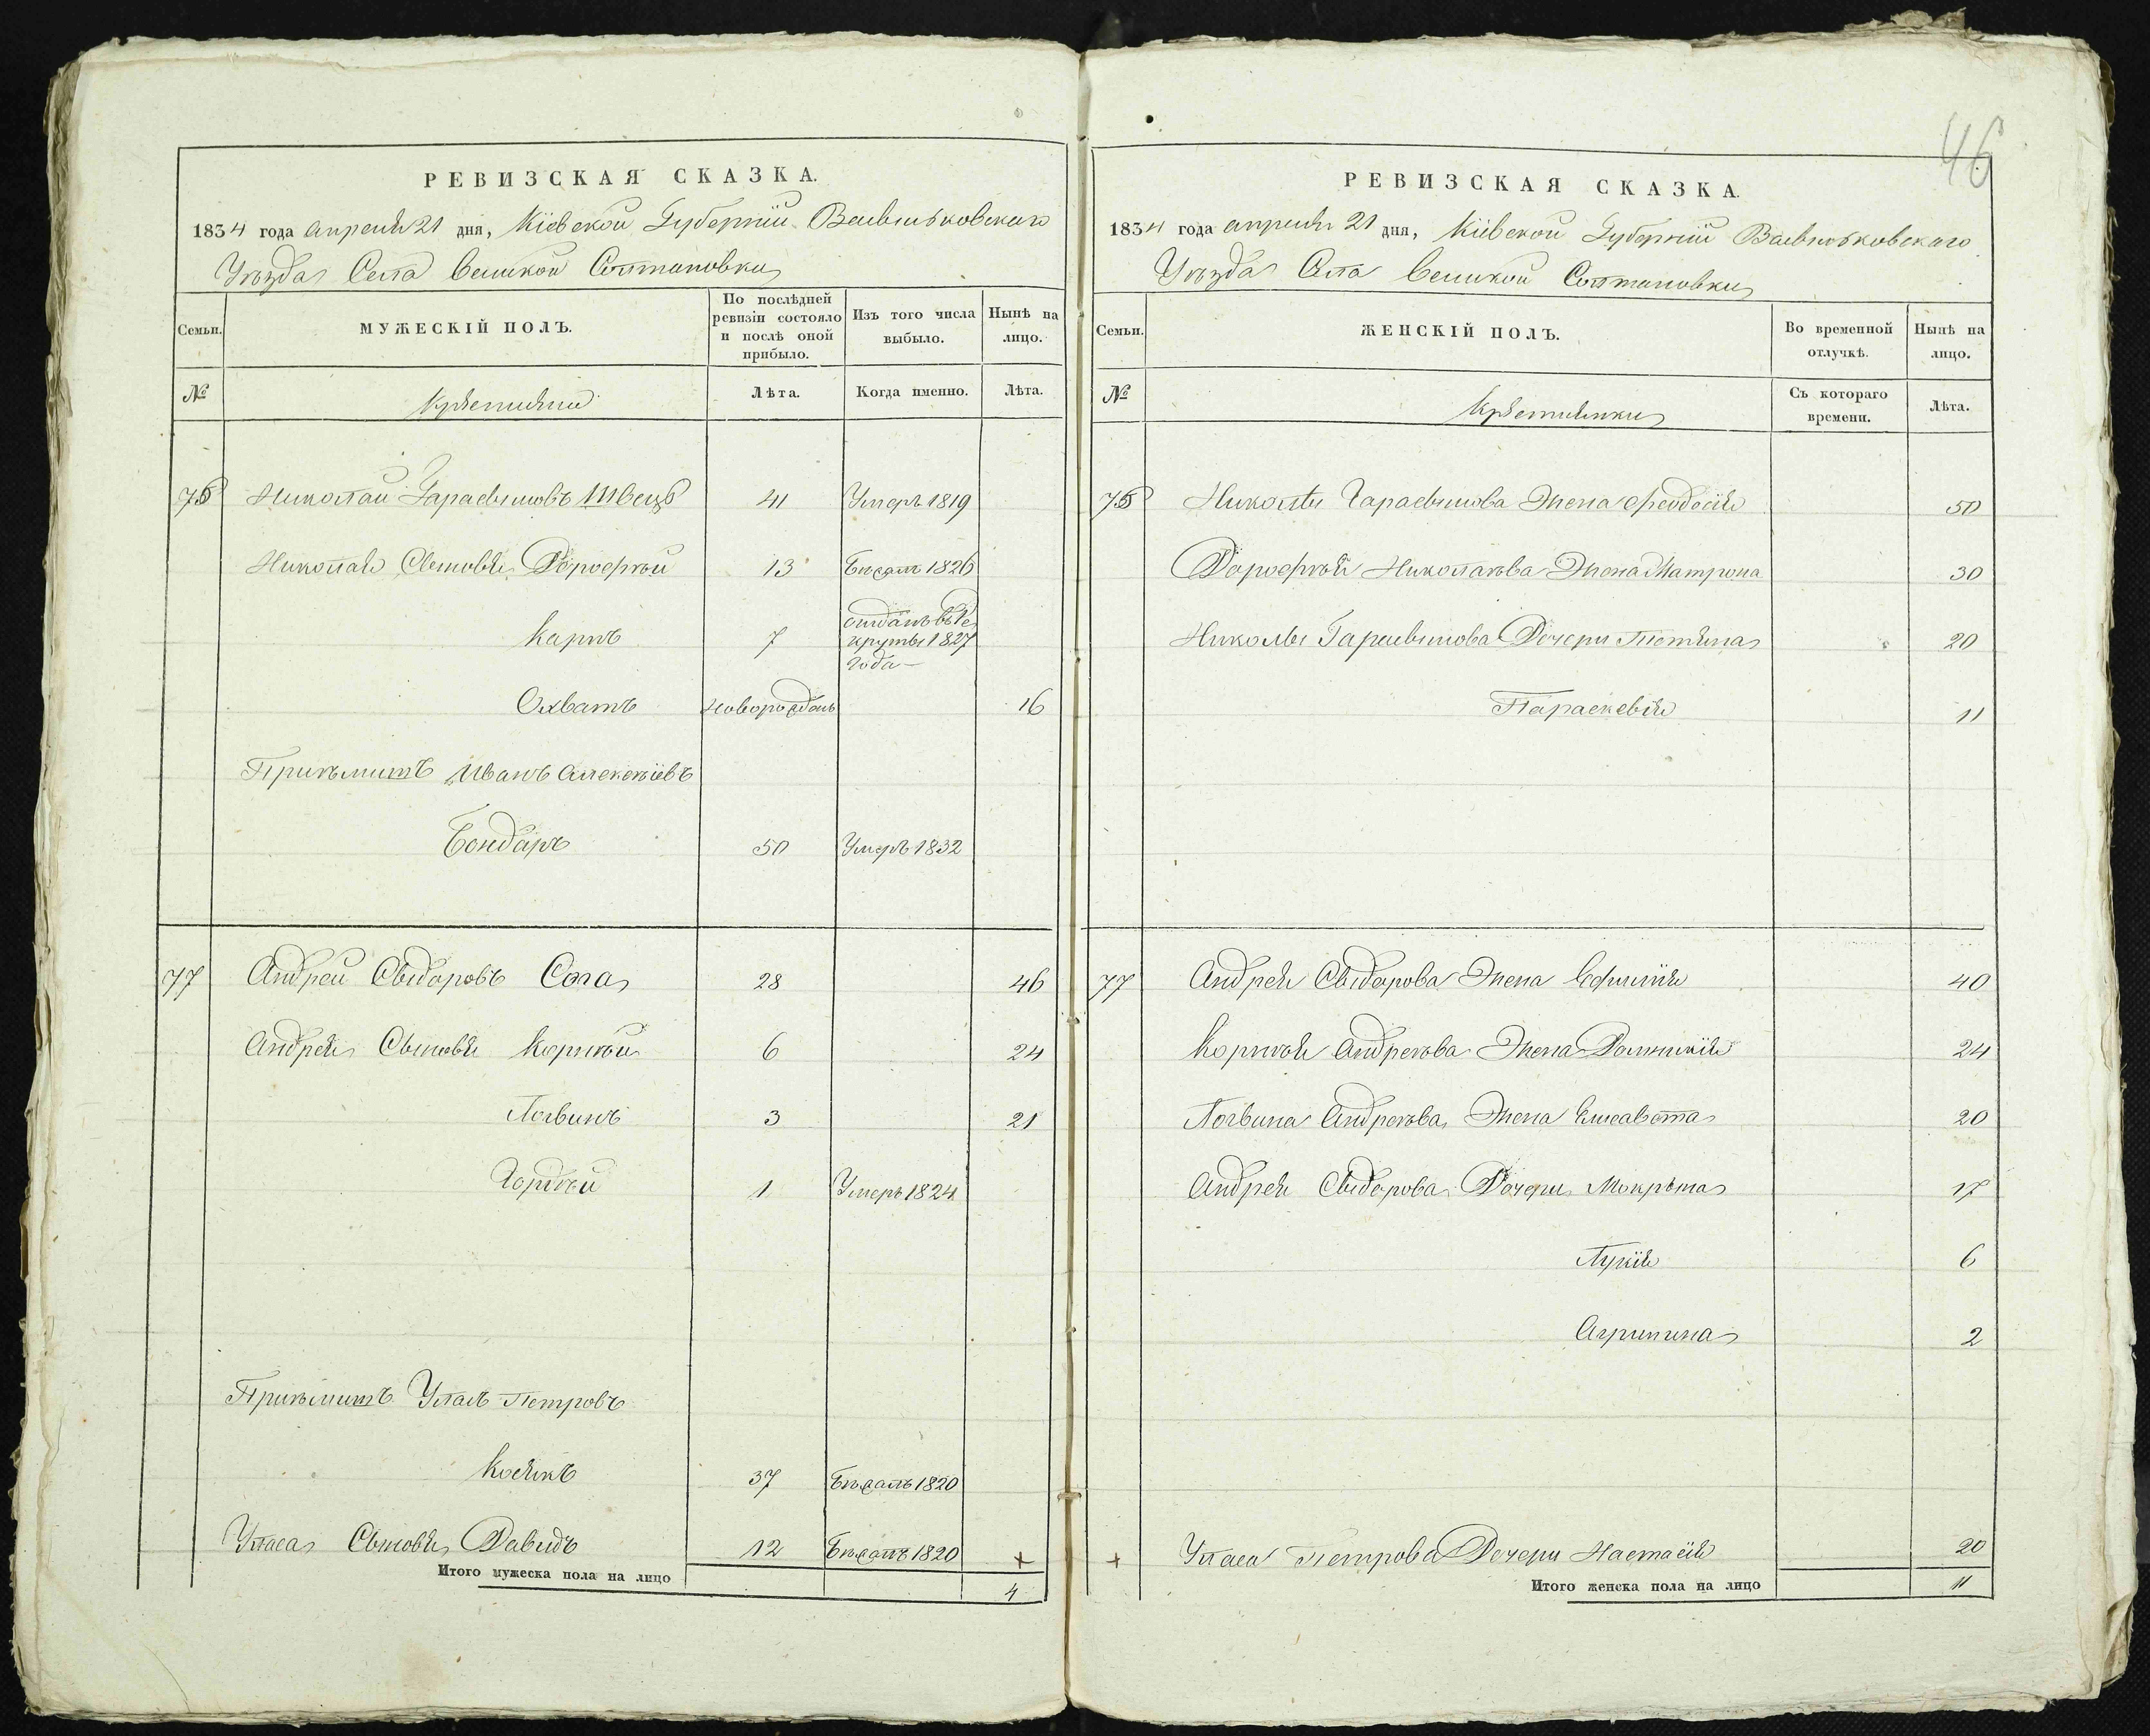 РЕВИЗСКАЯ СКАЗКА.
1834 года апреля 21 дня, Кіевской Губерніи Васильковскаго
Уѣзда Села Великой Солтановки
Семьи.
МУЖЕСКІЙ ПОЛЪ.
По послѣдней ревизіи состояло и послѣ оной прибыло.
Изъ того числа выбыло.
Нынѣ на лицо.
№
Крестьяни
Лѣта.
Когда именно.
Лѣта.
76 Николай Гарасымовъ Швецъ 41 Умеръ 1819
Николая Сыновья Дорофѣй 13 Бѣжалъ 1826
Карпъ 7 отданъ въ Ре
круты 1827
года
новорожденъ 16
Приймитъ Иванъ Алексѣевъ
Бондарь 50 Умеръ 1832
77 Андрей Сыдоровъ 28 46
Андрея Сыновья Корнѣй 6 24
Логвинъ 3 21
Гордѣй 1 Умеръ 1824
Приймитъ Уласъ Петровъ
37 Бѣжалъ 1820
Уласа Сыновья Давидъ 12 Бѣжалъ 1820 +
Итого мужеска пола на лицо 4
46
РЕВИЗСКАЯ СКАЗКА.
1834 года апреля 21 дня, Кіевской Губерніи Васильковскаго
Уѣзда Села Великой Солтановки
Семьи.
ЖЕНСКІЙ ПОЛЪ.
Во временной отлучкѣ.
Нынѣ на лицо.
№
Крестьянки
Съ котораго времени.
Лѣта.
76 Николы Гарасымова Жена Феодосія 50
Дорофѣя Николаева Жена Матрона 30
Николы Гарасымова Дочери Тетяна 20
Параскевія 11
77 Андрея Сыдорова Жена Ефимія 40
Корнѣя Андреева Жена Домникія 24
Логвина Андреева Жена Елисавета 20
Андрея Сыдорова Дочери Мокрына 17
Лукія 6
Агрипина 2
+ Уласа Петрова Дочери Настасія 20
Итого женска пола на лицо 11